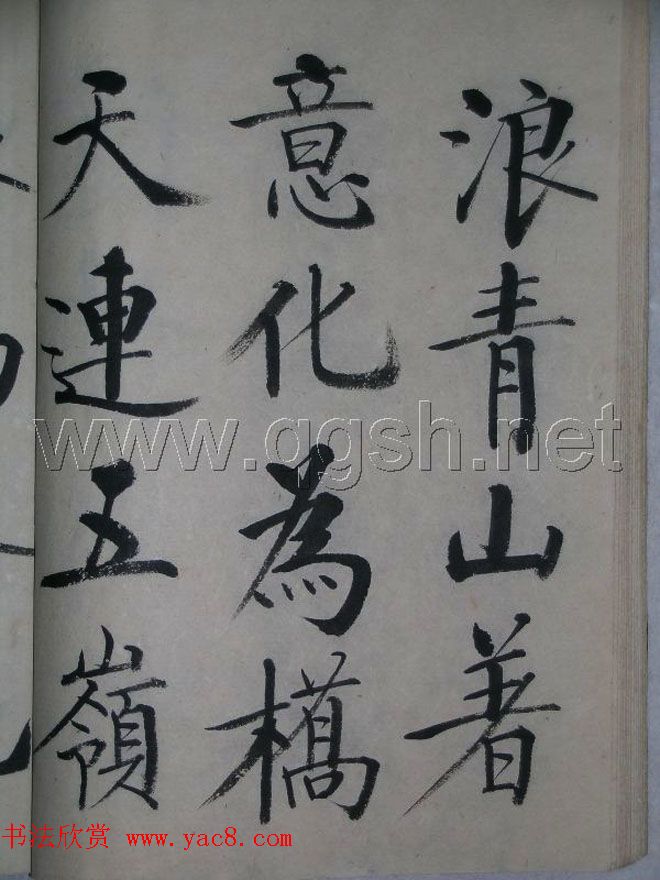 浪青山著
意化為橋
天連五嶺
www.qgsh.net
书法欣赏 www.yac8.com